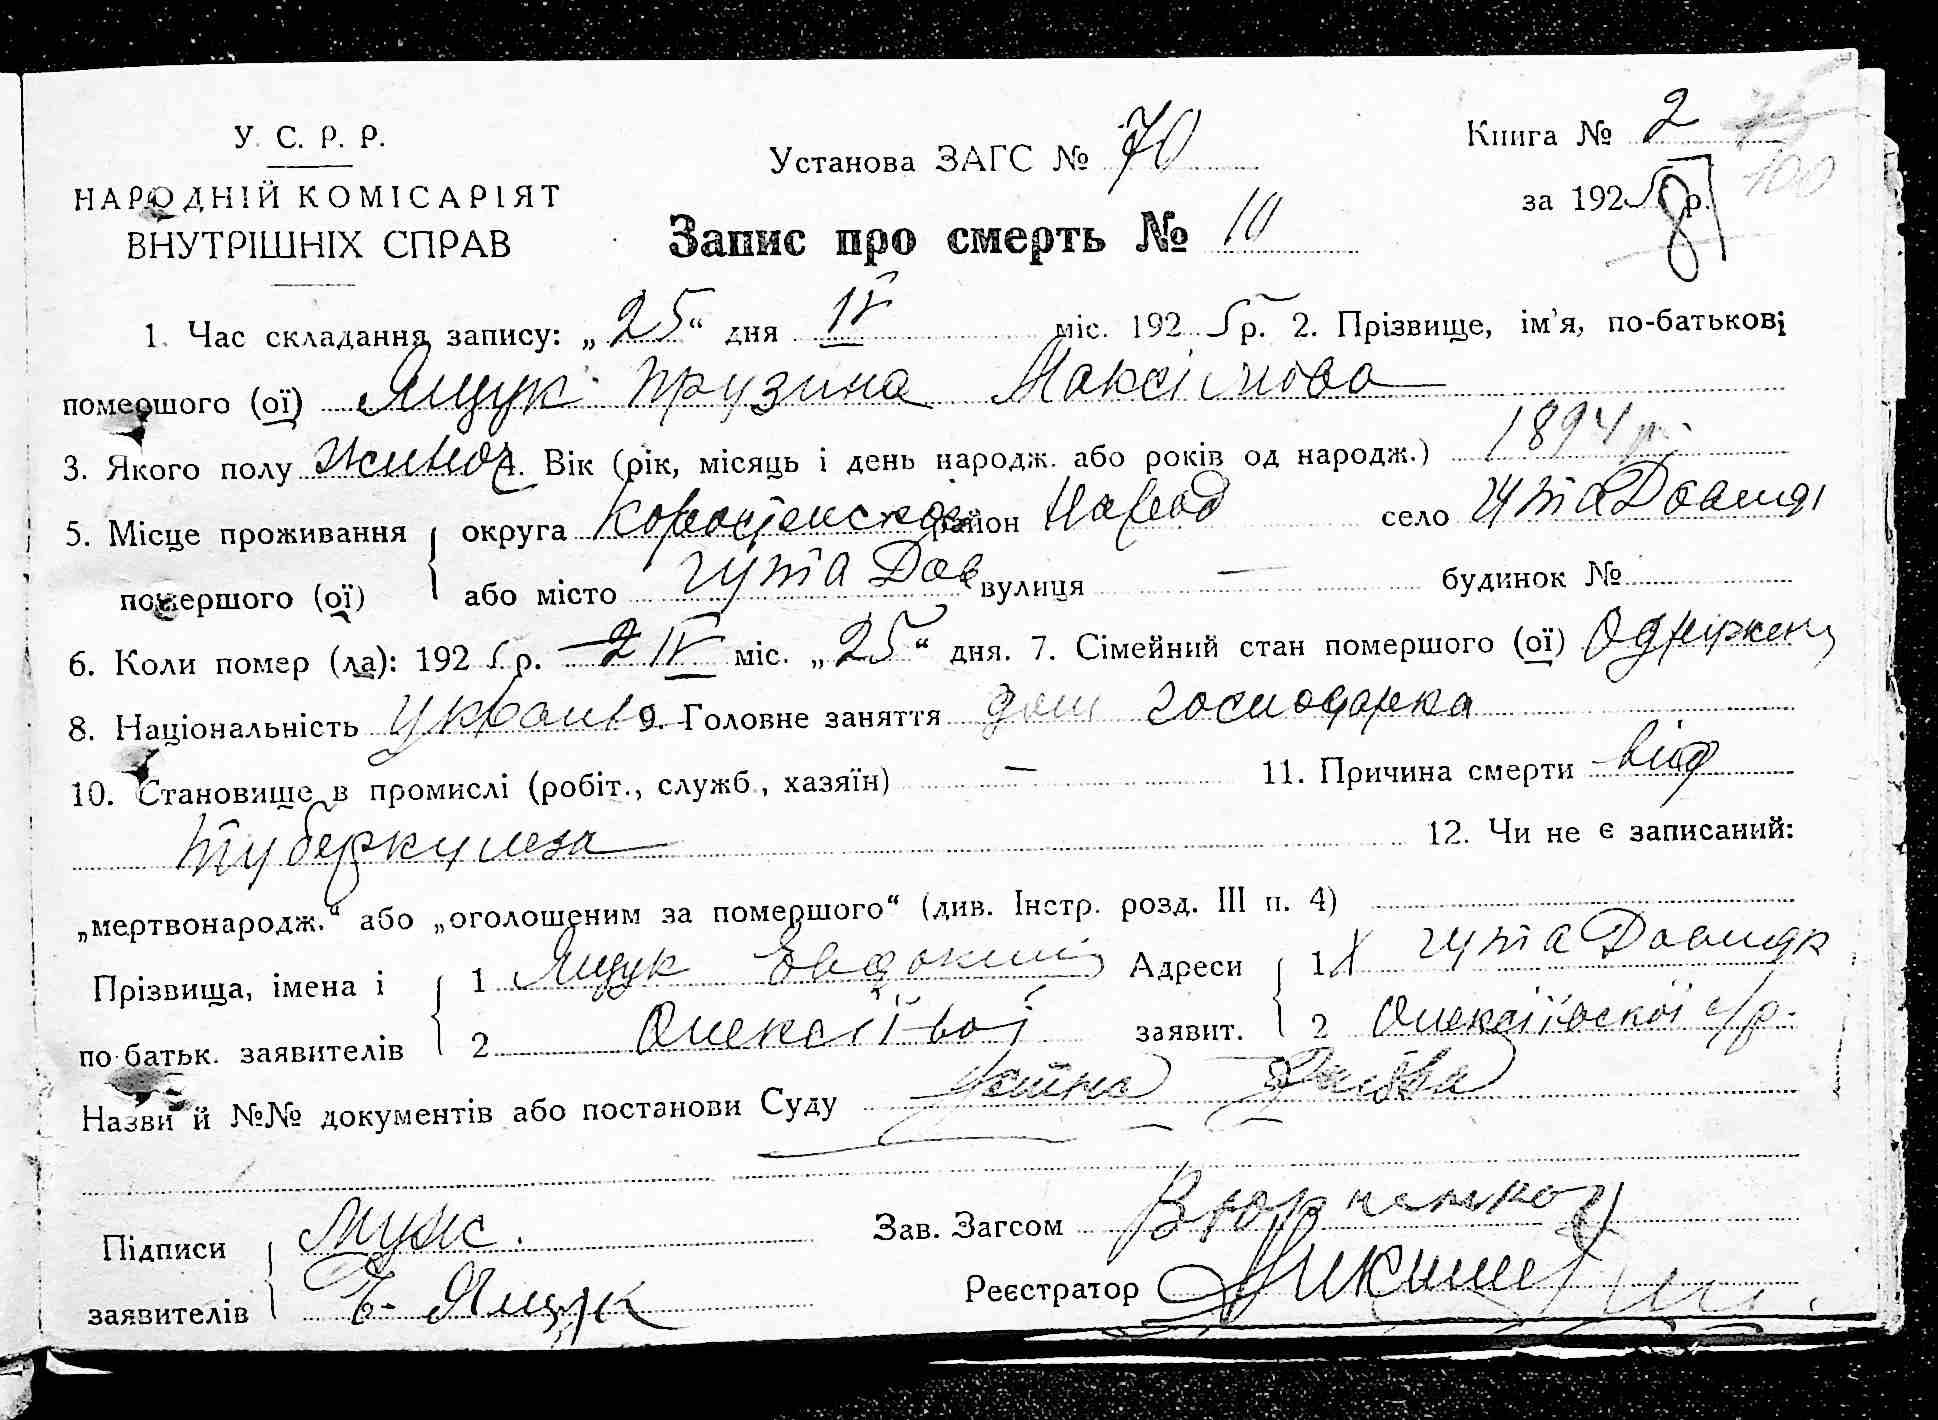 У. С. Р. Р.
НАРОДНІЙ КОМІСАРІЯТ
ВНУТРІШНІХ СПРАВ
Установа ЗАГС № 70
Книга № 2
за 1925 р.
8
100
Запис про смерть № 10
1. Час складання запису: „25“ дня IV міс. 1925 р. 2. Прізвище, ім'я, по-батькові
помершого (ої) Ящук Прузина Максімова
3. Якого полу жиноч 4. Вік (рік, місяць і день народж. або років од народж.) 1894 р.
5. Місце проживання округа Коростенской район Народ село Гута Давидя
помершого (ої) або місто Гута Дав вулиця — будинок №
6. Коли помер (ла): 1925 р. IV міс. „25“ дня. 7. Сімейний стан помершого (ої)
8. Національність 9. Головне заняття дом господарка
10. Становище в промислі (робіт., служб., хазяїн) — 11. Причина смерти від
туберкулеза 12. Чи не є записаний:
„мертвонародж.“ або „оголошеним за помершого“ (див. Інстр. розд. III п. 4)
Прізвища, імена і 1 Ящук Евдоким Адреси 1 Гута Давидк
по батьк. заявителів 2 заявит. 2 с/р.
Назви й №№ документів або постанови Суду Устна Заява
Підписи Муж. Зав. Загсом
заявителів Е. Ящук Реєстратор